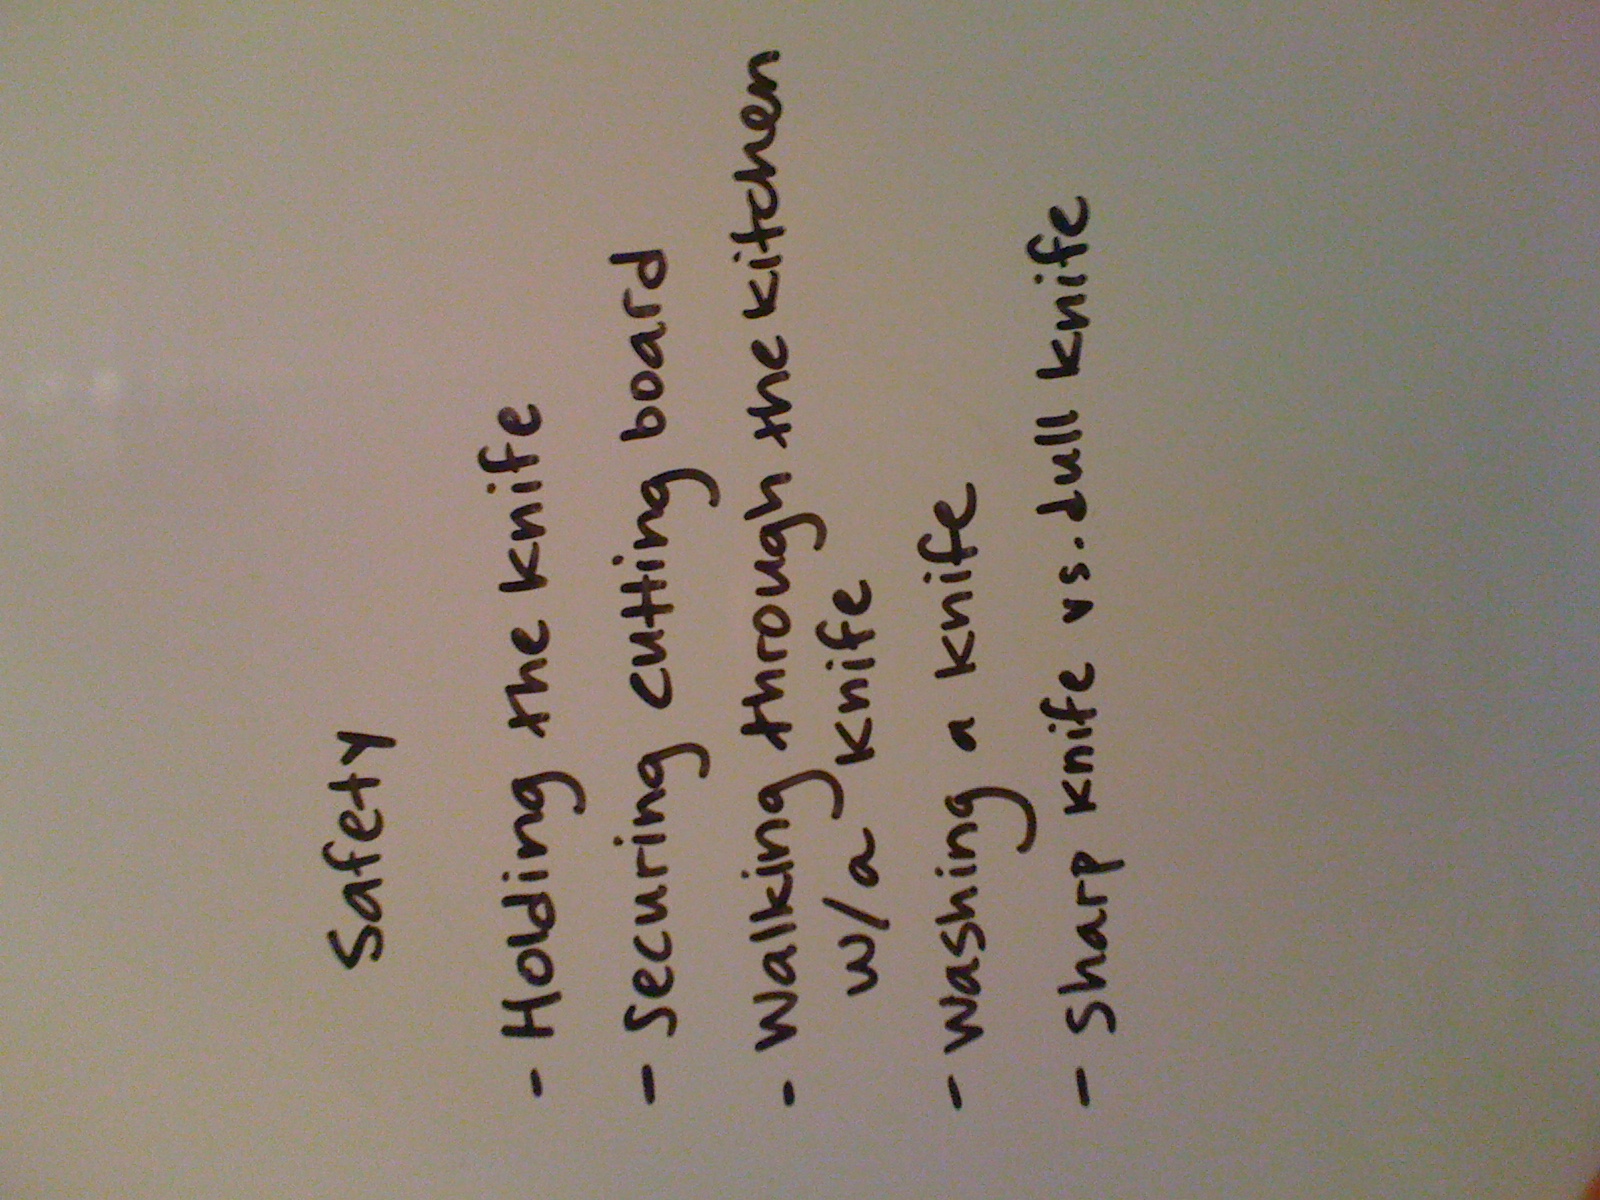 Safety
- Holding the knife
- Securing cutting board
- Walking through the kitchen
w/a knife
- washing a knife
- Sharp knife vs. dull knife